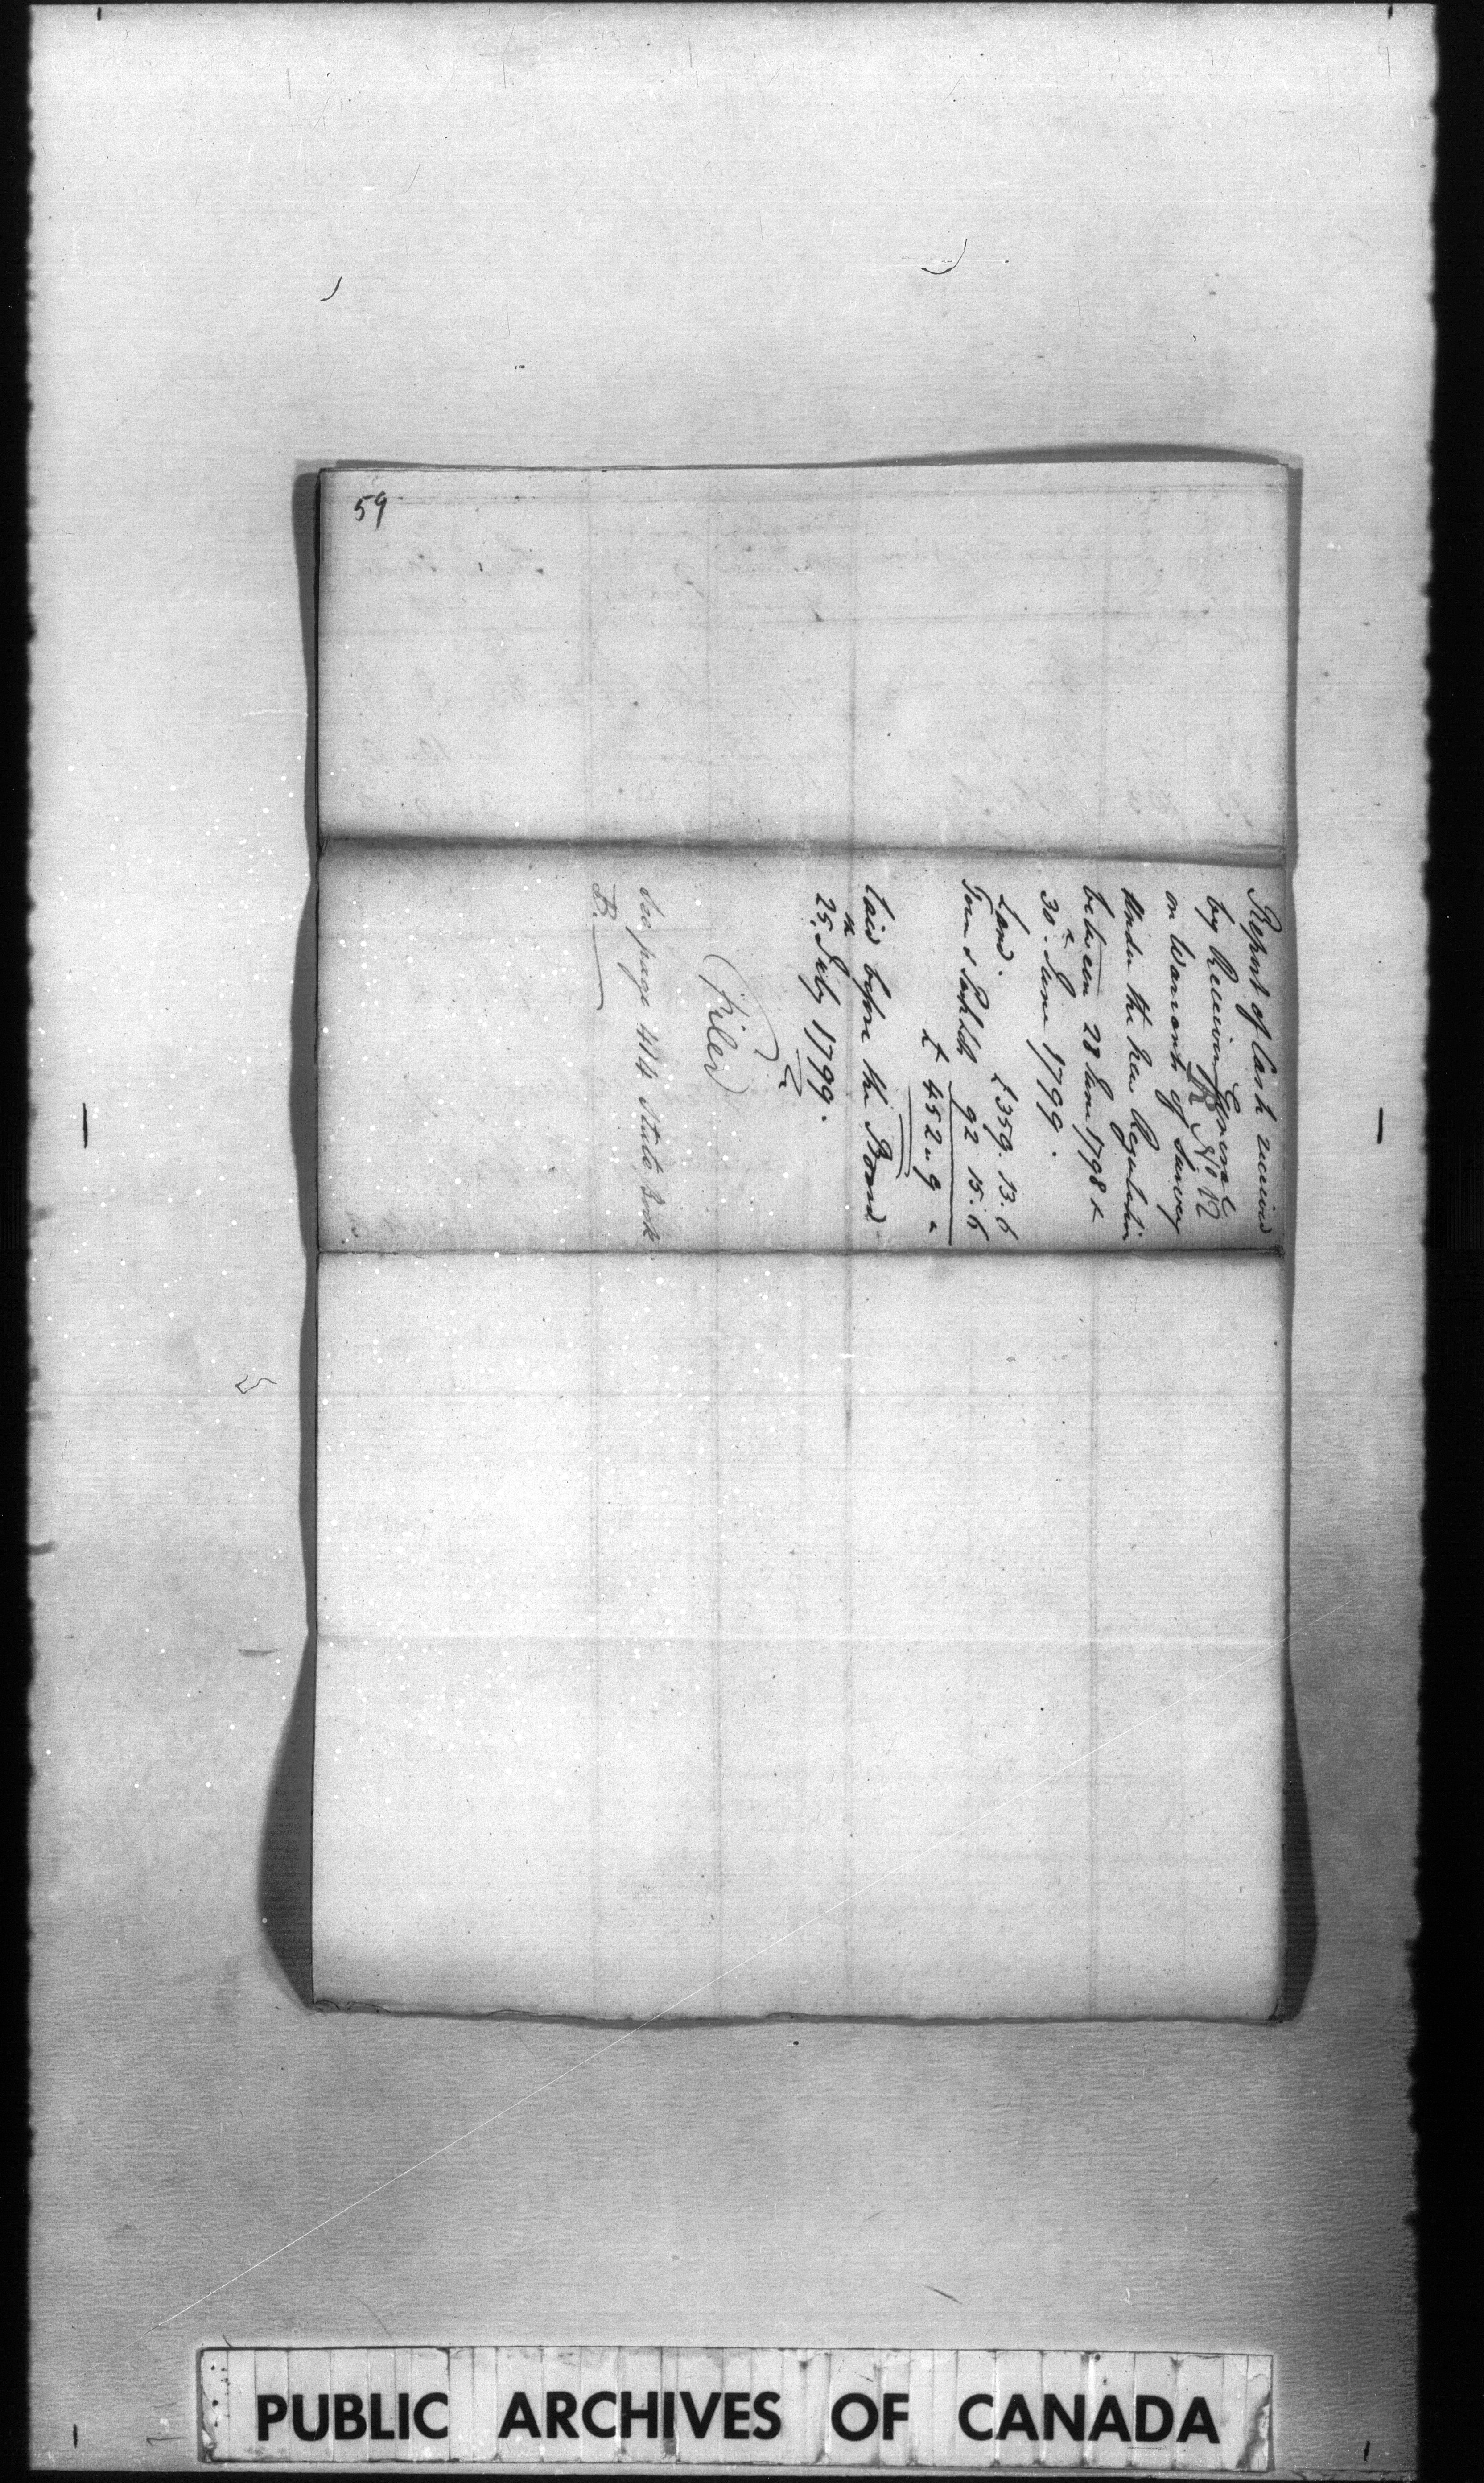 59
Report of Cash received
by Receiver General
B No 12
on Warrants of Survey
Under the New Regulation
between 28 June 1798 &
30th June 1799.
Land. £359. 13. 6
Town & Park Lots 92 15. 6
£ 452 " 9 "
Laid before the Board
25th July 1799.
(Filed)
See page 414 State Book
B.
PUBLIC ARCHIVES OF CANADA